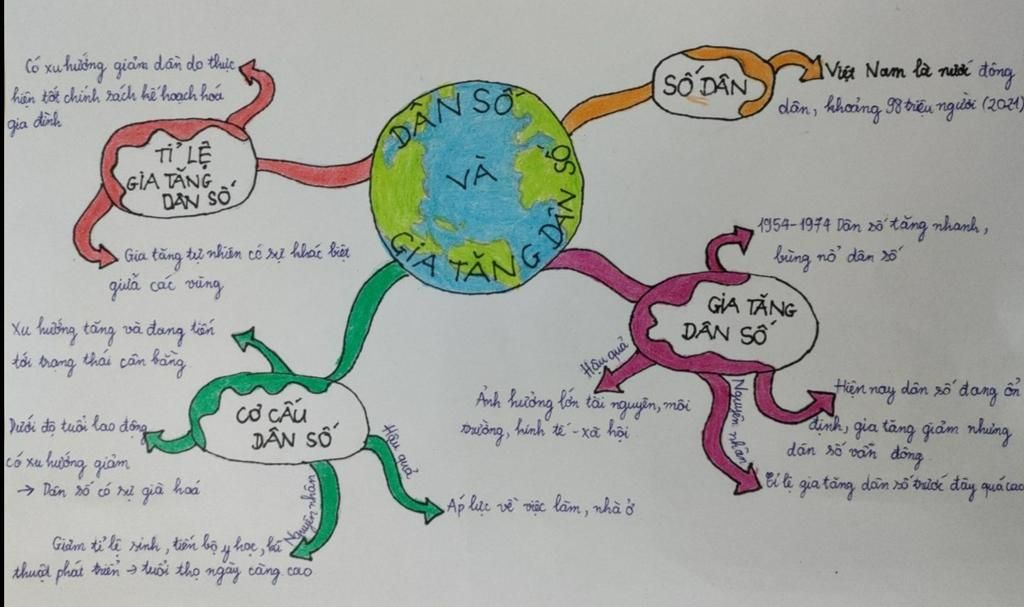 DÂN SỐ
VÀ
GIA TĂNG DÂN SỐ
SỐ DÂN
Việt Nam là nước đông
dân, khoảng 98 triệu người (2021)
TỈ LỆ
GIA TĂNG
DÂN SỐ
Có xu hướng giảm dần do thực
hiện tốt chính sách kế hoạch hoá
gia đình
Gia tăng tự nhiên có sự khác biệt
giữa các vùng
GIA TĂNG
DÂN SỐ
1954-1974 Dân số tăng nhanh,
bùng nổ dân số
Hiện nay dân số đang ổn
định, gia tăng giảm nhưng
dân số vẫn đông
Nguyên nhân
Tỉ lệ gia tăng dân số trước đây quá cao
Hậu quả
Ảnh hưởng lớn tài nguyên, môi
trường, kinh tế - xã hội
CƠ CẤU
DÂN SỐ
Xu hướng tăng và đang tiến
tới trạng thái cân bằng
Dưới độ tuổi lao động
có xu hướng giảm
→ Dân số có sự già hoá
Nguyên nhân
Giảm tỉ lệ sinh, tiến bộ y học, kĩ
thuật phát triển → tuổi thọ ngày càng cao
Hậu quả
Áp lực về việc làm, nhà ở